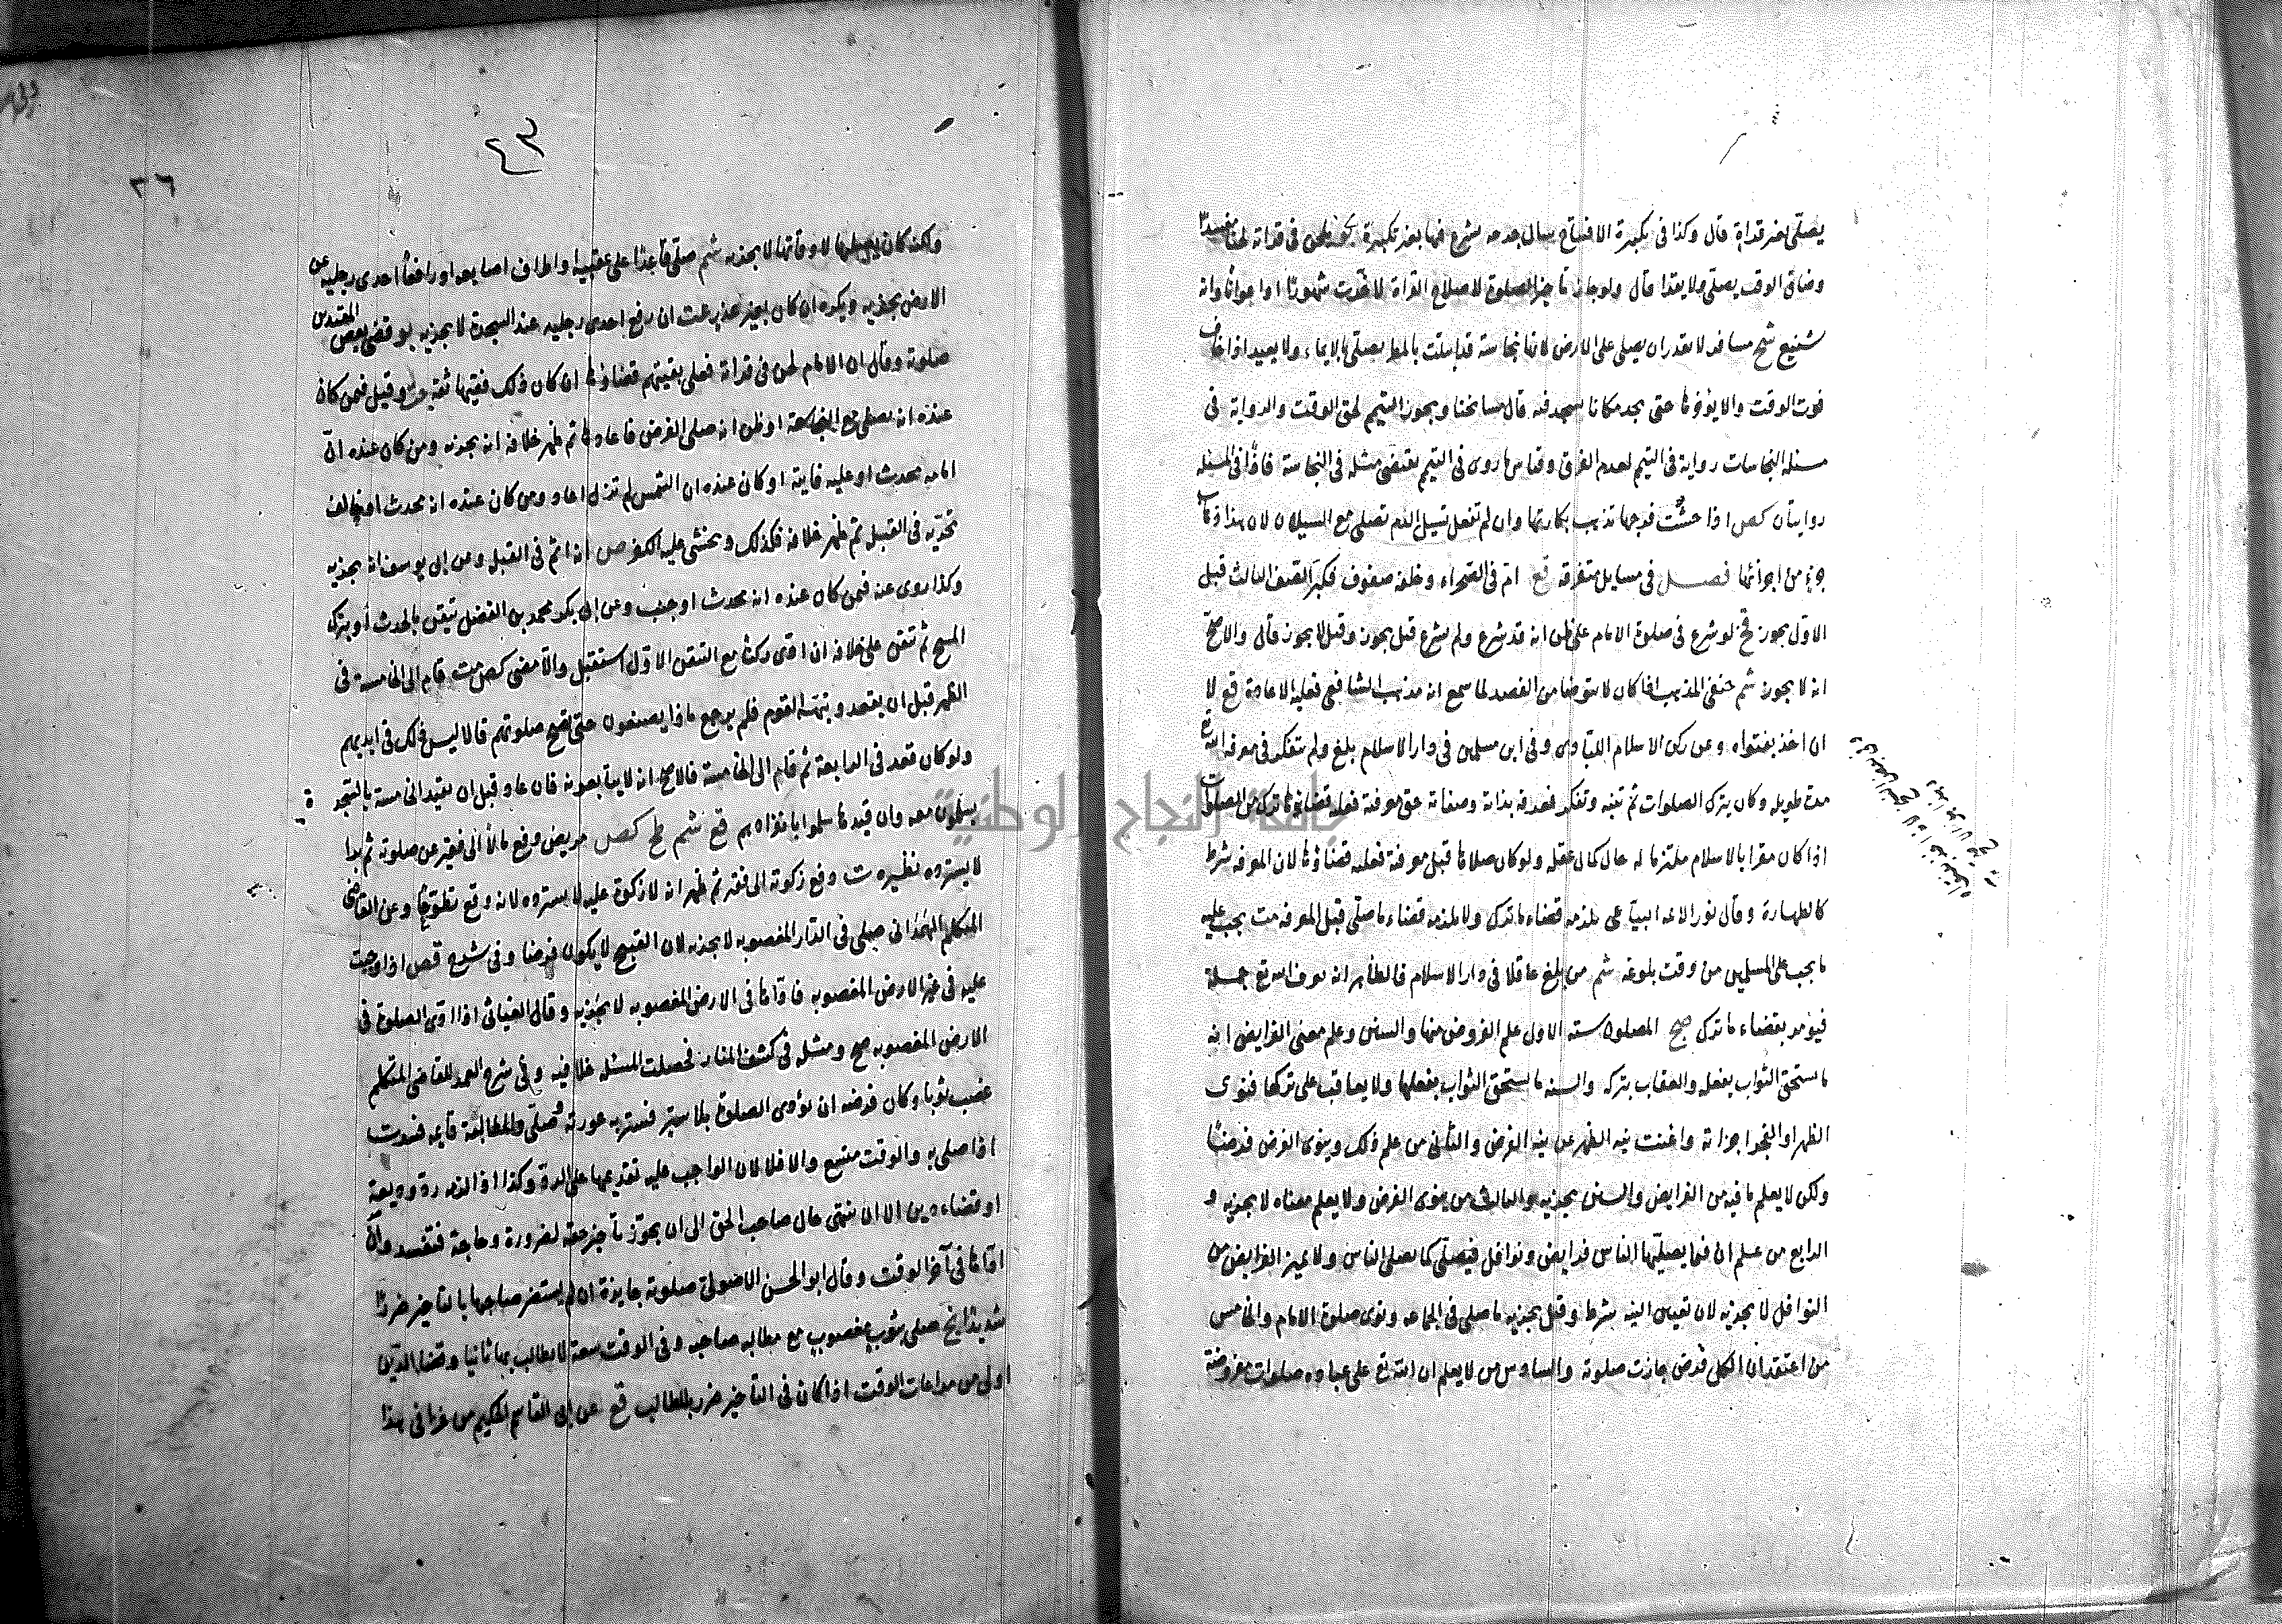 يصلى بغير قراءة قال وكذا فى تكبيرة الافتتاح
وضاق الوقت يصلى ولا يقرا قال ولو جاز تاخير الصلوة لاصلاح القراة لاخرت شهورا او اعواما وانه
شنيع شح مسافر لا يقدر ان يصلى على الارض لانها نجاسة قد ابتلت بالمطر يصلى بالايماء ولا يعيد اذا خاف
فوت الوقت والا يؤخرها حتى يجد مكانا يسجد فيه قال مشايخنا ويجوز التيمم لحق الوقت والرواية فى
مسئلة النجاسات رواية فى التيمم لعدم الفرق وقياس ما روى فى التيمم يقتضى مثله فى النجاسة فاذا فى المسئلة
روايتان كص اذا حشت فرجها تذهب بكارتها وان لم تفعل تسيل الدم تصلى مع السيلان لان هذا ذهاب
جزء من اجزائها فصل فى مسايل متفرقة قع ام فى الصحراء وخلفه صفوف فكبر الصف الثالث قبل
الاول يجوز قخ لو شرع فى صلوة الامام على ظن انه قد شرع ولم يشرع قيل يجوز وقيل لا يجوز قال والاصح
انه لا يجوز شم حنفى المذهب اذا كان لا يتوضا من الفصد لما سمع انه مذهب الشافعى فعليه الاعادة قع لا
ان اخذ بفتواه وعن ركن الاسلام اللبادى وفى ابن مسلمين فى دار الاسلام بلغ ولم يتفكر فى معرفة الله تع
مدة طويلة وكان يترك الصلوات ثم تنبه وتفكر فعرفه بذاته وصفاته حق معرفته فعليه قضاء ما ترك من الصلوات
اذا كان مقرا بالاسلام ملتزما له حال كمال عقله ولو كان صلاها قبل معرفته فعليه قضاؤها لان المعرفة شرط
كالطهارة وقال نور الائمة البياعى يلزمه قضاء ما ترك ولا يلزمه قضاء ما صلى قبل المعرفة مت يجب عليه
ما يجب على المسلمين من وقت بلوغه شم من بلغ عاقلا فى دار الاسلام فالظاهر انه يعرف الله تع جملة
فيؤمر بقضاء ما ترك صح المصلون ستة الاول علم الفروض منها والسنن وعلم معنى الفرايض انه
ما يستحق الثواب بفعله والعقاب بتركه والسنة ما يستحق الثواب بفعلها ولا يعاقب على تركها فنوى
الظهر او الفجر اجزاته واغنت نية الظهر عن نية الفرض والثانى من علم ذلك وينوى الفرض فرضا
ولكن لا يعلم ما فيه من الفرايض والسنن يجزيه والثالث من ينوى الفرض ولا يعلم معناه لا يجزيه و
الرابع من علم ان فيما يصليها الناس فرايض ونوافل فيصلى كما يصلى الناس ولا يميز الفرايض من
النوافل لا يجزيه لان تعيين النية شرط وقيل يجزيه ما صلى فى الجماعة ونوى صلوة الامام والخامس
من اعتقد ان الكل فرض جازت صلوته والسادس من لا يعلم ان لله تع على عباده صلوات مفروضة
٤٣
٣٦
ولكنه كان يصليها لاوقاتها لا يجزيه شم صلى قاعدا على عقبيه او اطراف اصابعه او رافعا احدى رجليه عن
الارض يجزيه ويكره ان كان بغير عذر عت ان رفع احدى رجليه عند السجدة لا يجزيه بو قضى بعض المقتدين
صلوته وقال ان الامام لحن فى قراته فعلى بقيتهم قضاؤها ان كان ذلك فقيها ثقة وقيل فمن كان
عنده انه يصلى مع النجاسة او ظن انه صلى الفرض فاعادها ثم ظهر خلافه انه يجزيه ومن كان عنده ان
امامه محدث او عليه فايتة او كان عنده ان الشمس لم تزل اعاد ومن كان عنده انه محدث او خالف
تحريه فى القبلة ثم ظهر خلافه فكذلك ويخشى عليه الكفر ص انه اثم فى القبلة وعن ابى يوسف انه يجزيه
وكذا روى عنه فيمن كان عنده انه محدث او جنب وعن ابى بكر محمد بن الفضل تيقن بالحدث او بترك
المسح ثم تيقن على خلافه ان ادى ركنا مع التيقن الاول استقبل والا مضى كص مت قام الى الخامسة فى
الظهر قبل ان يقعد ونبهه القوم فلم يرجع ماذا يصنعون حتى تصح صلوتهم قالا ليس ذلك فى ايديهم
ولو كان قعد فى الرابعة ثم قام الى الخامسة فالاصح انه لا يتابعونه فان عاد قبل ان يقيد الخامسة بالسجدة
يسلمون معه وان قيدها سلموا بانفرادهم قع شم طح كص مريض دفع مالا الى فقير عن صلوته ثم بدا
لا يسترده نظيره ت دفع زكوته الى فقير ثم ظهر انه لا زكوة عليه لا يسترده لانه وقع تطوعا وعن القاضى
المتكلم الهمذانى صلى فى الدار المغصوبة لا يجزيه لان القبيح لا يكون فرضا وفى شرح قص اذا وجبت
عليه فى غير الارض المغصوبة فاداها فى الارض المغصوبة لا يجزيه وقال الغياثى اذا ادى الصلوة فى
الارض المغصوبة صح ومثله فى كشف المنار فحصلت المسئلة خلافية وفى شرح العمد للقاضى المتكلم
غصب ثوبا وكان فرضه ان يؤدى الصلوة بلا ستر فستر به عورته وصلى والمطالبة قايمة فسدت
اذا صلى به والوقت متسع والا فلا لان الواجب عليه تقديمها على الرد وكذا اذا لزمه رد وديعة
او قضاء دين الا ان ينتهى حال صاحب الحق الى ان يجوز تاخير حقه لضرورة وحاجة فتفسد وان
اداها فى آخر الوقت وقال ابو الحسن الاصولى صلوته جايزة ان لم يستضر صاحبها بالتاخير ضررا
شديدا بخ صلى بثوب مغصوب مع مطالبة صاحبه وفى الوقت سعة لا يطالب بها ثانيا وقضا الدين
اولى من مراعات الوقت اذا كان فى التأخير ضرر بالطالب قع عن ابى القاسم الحكيم من غزا فى هذا
جامعة النجاح الوطنية